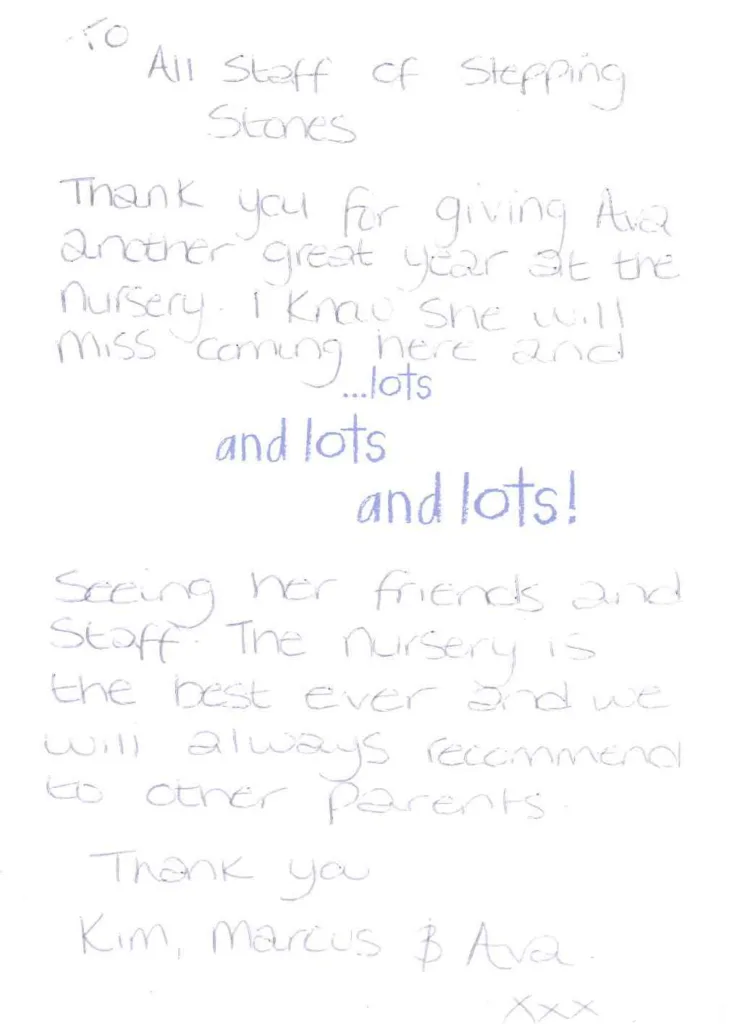 To
All Staff of Stepping
Stones
Thank you for giving Ava
another great year at the
nursery. I know she will
miss coming here and
...lots
and lots
and lots!
Seeing her friends and
Staff. The nursery is
the best ever and we
will always recommend
to other Parents.
Thank you
Kim, Marcus & Ava.
xxx